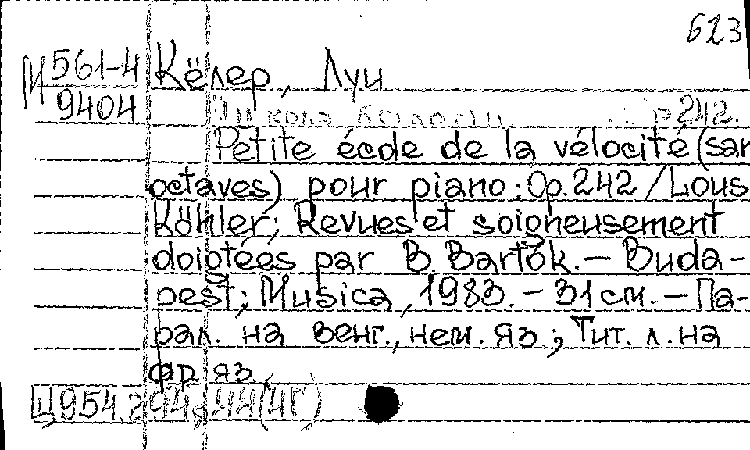 623
М 561-4 Кёлер, Луи
9404
Школа беглости ... ор. 242.
Petite école de la vélocité (san
octaves) pour piano: Op. 242 / Lous
Köhler; Revues et soigneusement
doigtées par B. Bartók. – Buda-
pest; Musica, 1983. – 31 см. – Па-
рал. на венг., нем. яз; Тит. л. на
фр яз
Ц954.294.44(4Г)